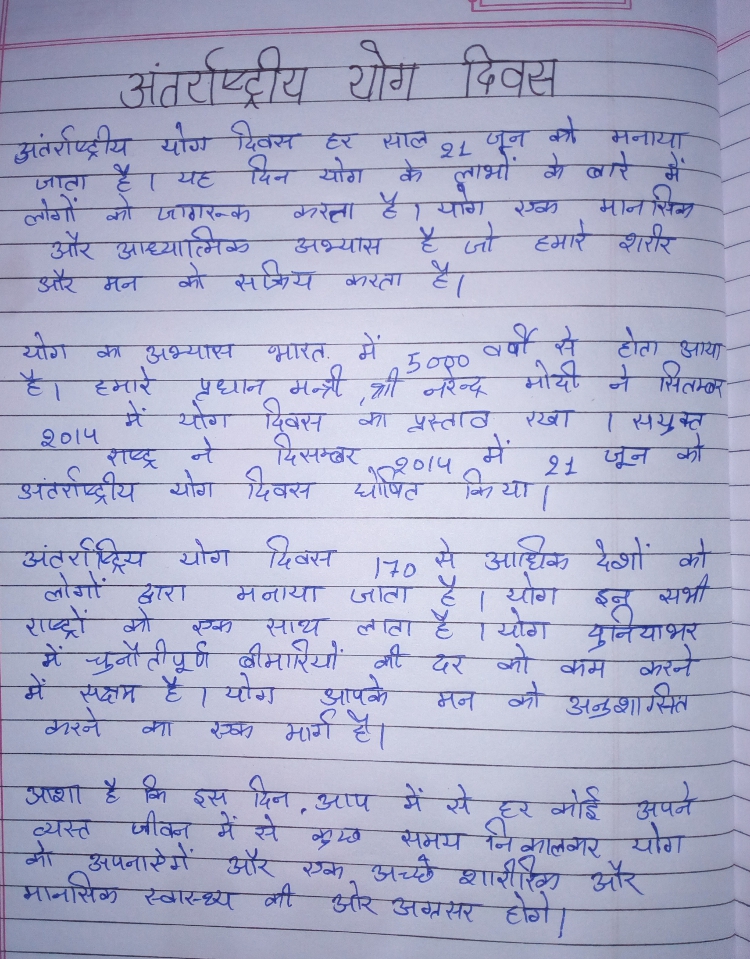 अंतर्राष्ट्रीय योग दिवस
अंतर्राष्ट्रीय योग दिवस हर साल 21 जून को मनाया
जाता है। यह दिन योग के लाभों के बारे में
लोगों को जागरूक करता है। योग एक मानसिक
और आध्यात्मिक अभ्यास है जो हमारे शरीर
और मन को सक्रिय करता है।
योग का अभ्यास भारत में 5000 वर्षों से होता आया
है। हमारे प्रधान मन्त्री, श्री नरेन्द्र मोदी ने सितम्बर
2014 में योग दिवस का प्रस्ताव रखा । सयुक्त
राष्ट्र ने दिसम्बर 2014 में 21 जून को
अंतर्राष्ट्रीय योग दिवस घोषित किया।
अंतर्राष्ट्रिय योग दिवस 170 से अधिक देशों को
लोगों द्वारा मनाया जाता है। योग इन सभी
राष्ट्रों को एक साथ लाता है । योग दुनियाभर
में चुनौतीपूर्ण बीमारियों की दर को कम करने
में सक्षम है। योग आपके मन को अनुशासित
करने का एक मार्ग है।
आशा है कि इस दिन, आप में से हर कोई अपने
व्यस्त जीवन में से कुछ समय निकालकर योग
को अपनाऐगें और एक अच्छे शारीरिक और
मानसिक स्वास्थ्य की ओर अग्रसर होगे।